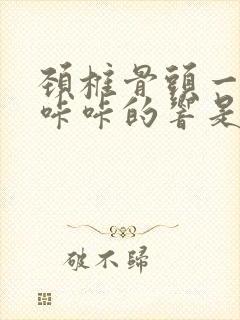 頚椎骨頭一
咔咔的響是
破不歸